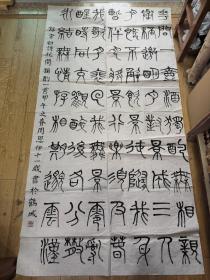 花間一壺酒獨酌無相親
舉杯邀明月對影成三人
月既不解飲影徒隨我身
暫伴月將影行樂須及春
我歌月徘徊我舞影零亂
醒時同交歡醉後各分散
永結無情遊相期邈雲漢
李白詩花間獨酌一首甲午之春周思伊十一歲書於鶴城